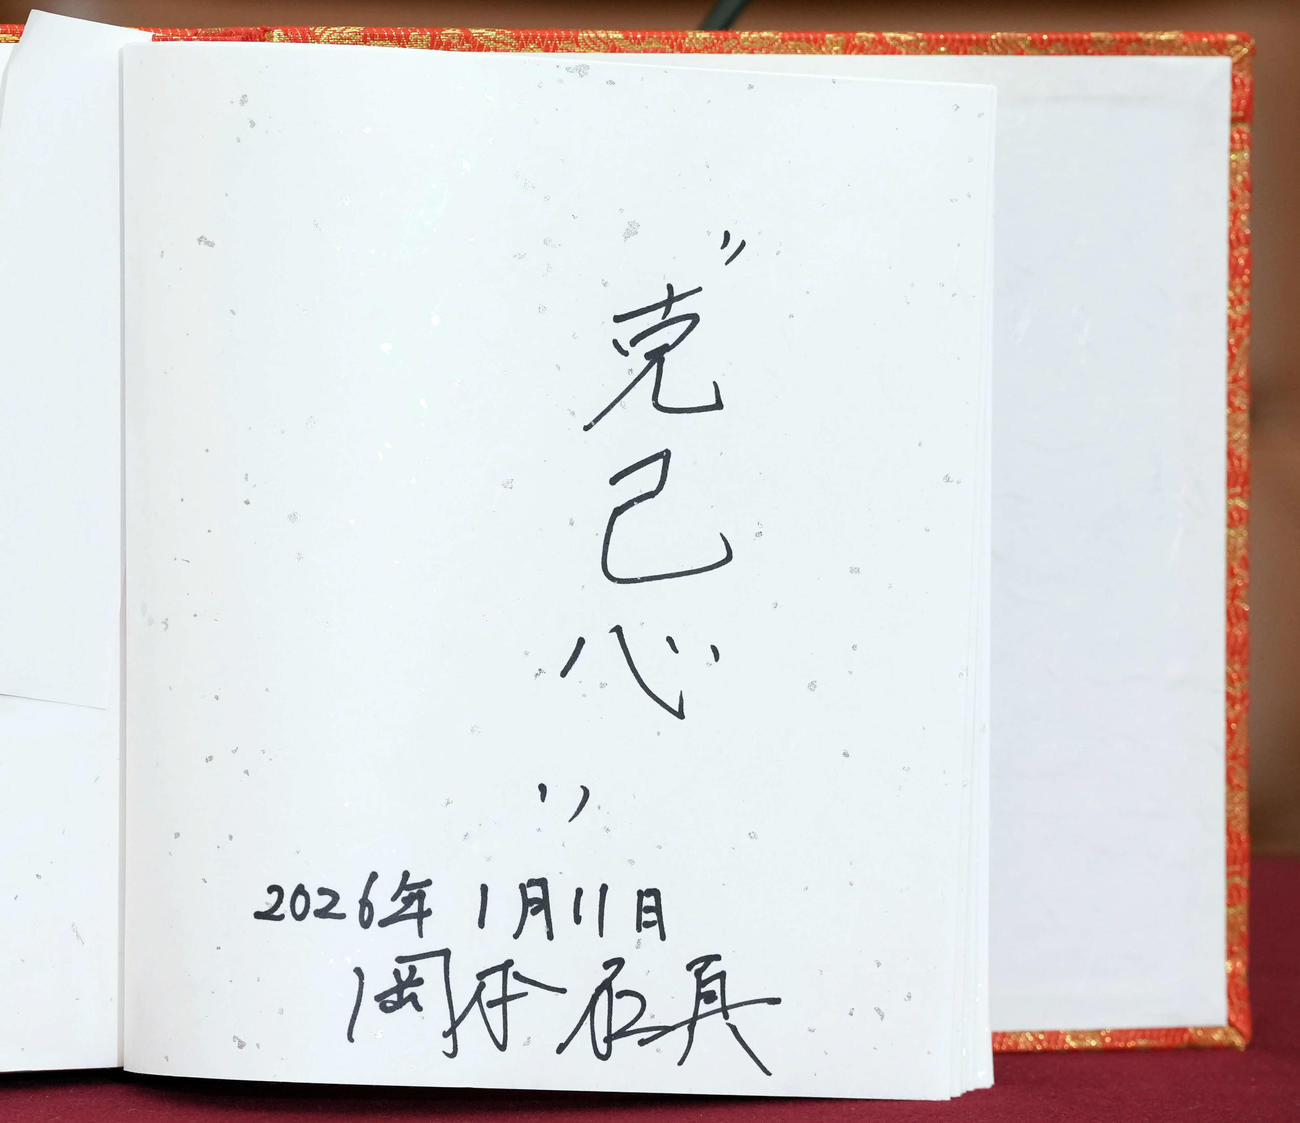 "克己心"
2026年 1月11日
岡本和真